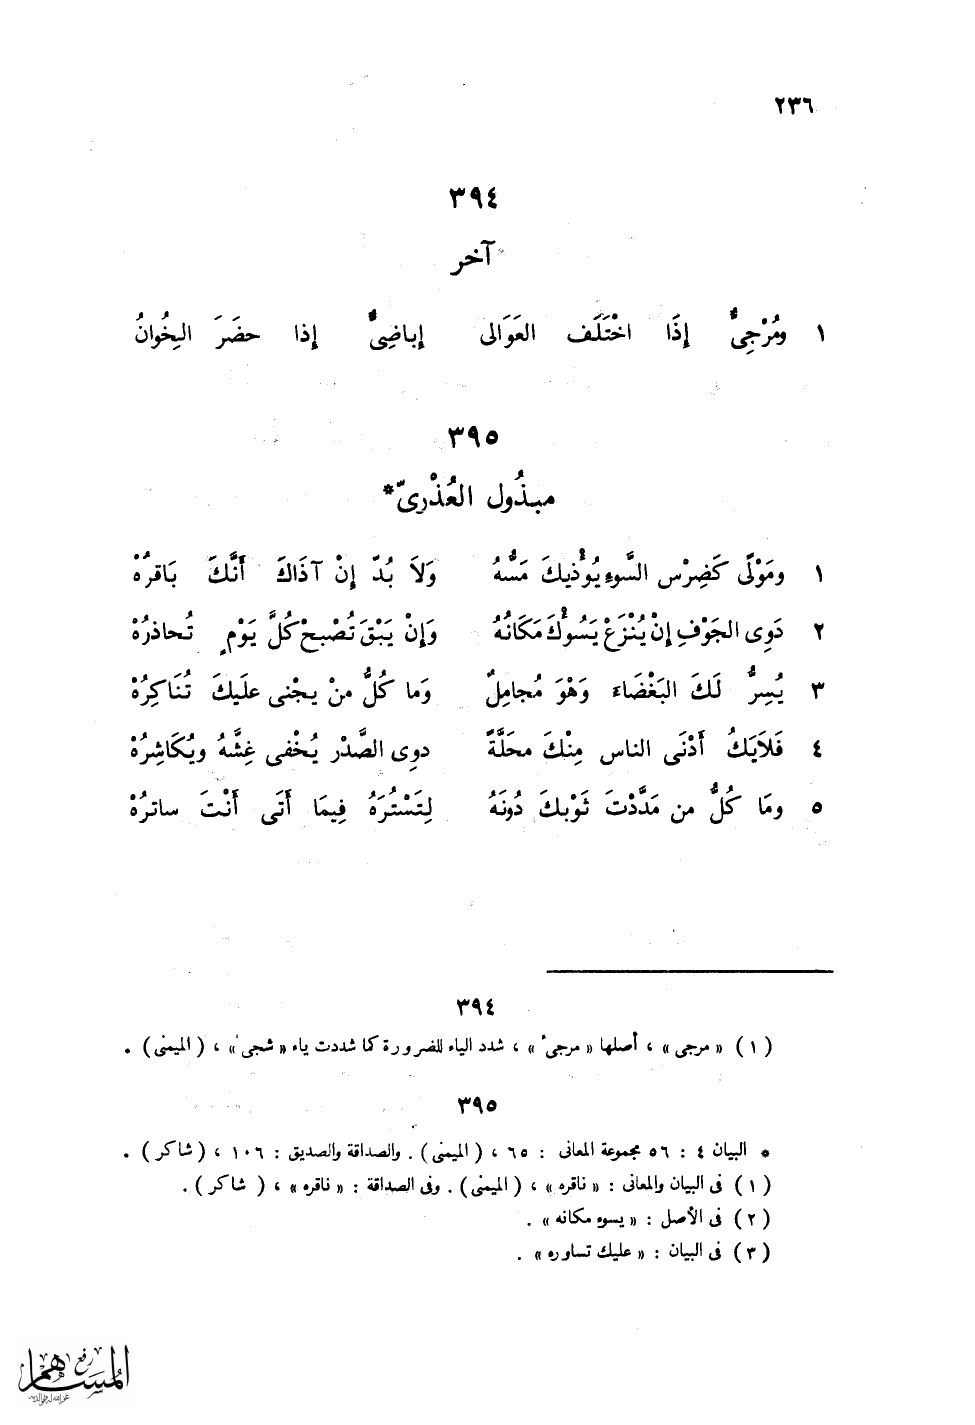 ٢٣٦
٣٩٤
آخر
١ ومُرْجِىٌّ إِذَا اخْتَلَف العَوَالى إباضِىٌّ إذا حضَرَ الِخُوانُ
٣٩٥
مبذُول العُذْرىّ*
١ ومَوْلًى كَضِرْس السَّوءِ يُؤْذيكَ مَسُّهُ وَلاَ بُدّ إنْ آذَاكَ أَنَّكَ بَاقرُهْ
٢ دَوِى الجَوْفِ إنْ يُنْزَعْ يَسُوْكَ مَكَانُهُ وَإِنْ يَبْقَ تُصْبحْ كُلَّ يَوْمٍ تُحاذرُهْ
٣ يُسِرُّ لَكَ البَغْضَاءَ وَهْوَ مُجامِلٌ وَما كُلُّ منْ يجْنى علَيكَ تُنَاكِرُهْ
٤ فَلاَيَكُ أَدْنَى الناس مِنْكَ محَلَّةً دوِى الصَّدْر يُخْفى غِشَّهُ ويُكَاشِرُهْ
٥ ومَا كُلُّ من مَدَّدْتَ ثَوْبكَ دُونَهُ لِتَسْتُرَهُ فِيمَا أَتَى أَنْتَ ساترُهْ
٣٩٤
(١) « مرجى » ، أصلها « مرجىٌ » ، شدد الياء للضرورة كما شددت ياء « شجىٌ » ، (الميمنى) .
٣٩٥
* البيان ٤ : ٥٦ مجموعة المعانى : ٦٥ ، (الميمنى) . والصداقة والصديق : ١٠٦ ، (شاكر) .
(١) فى البيان والمعانى : « ناقره » ، (الميمنى) . وفى الصداقة : « ناقره » ، ( شاكر) .
(٢) فى الأصل : « يسوء مكانه » .
(٣) فى البيان : « عليك تساوره » .
رفع
المساهم